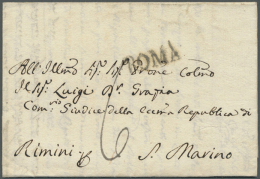 ROMA
All' Illmo Sig. Sig. Prone Colmo
Il Sig. Luigi
Comrio Giudice della Eccma Republica di
6
Rimini S. Marino